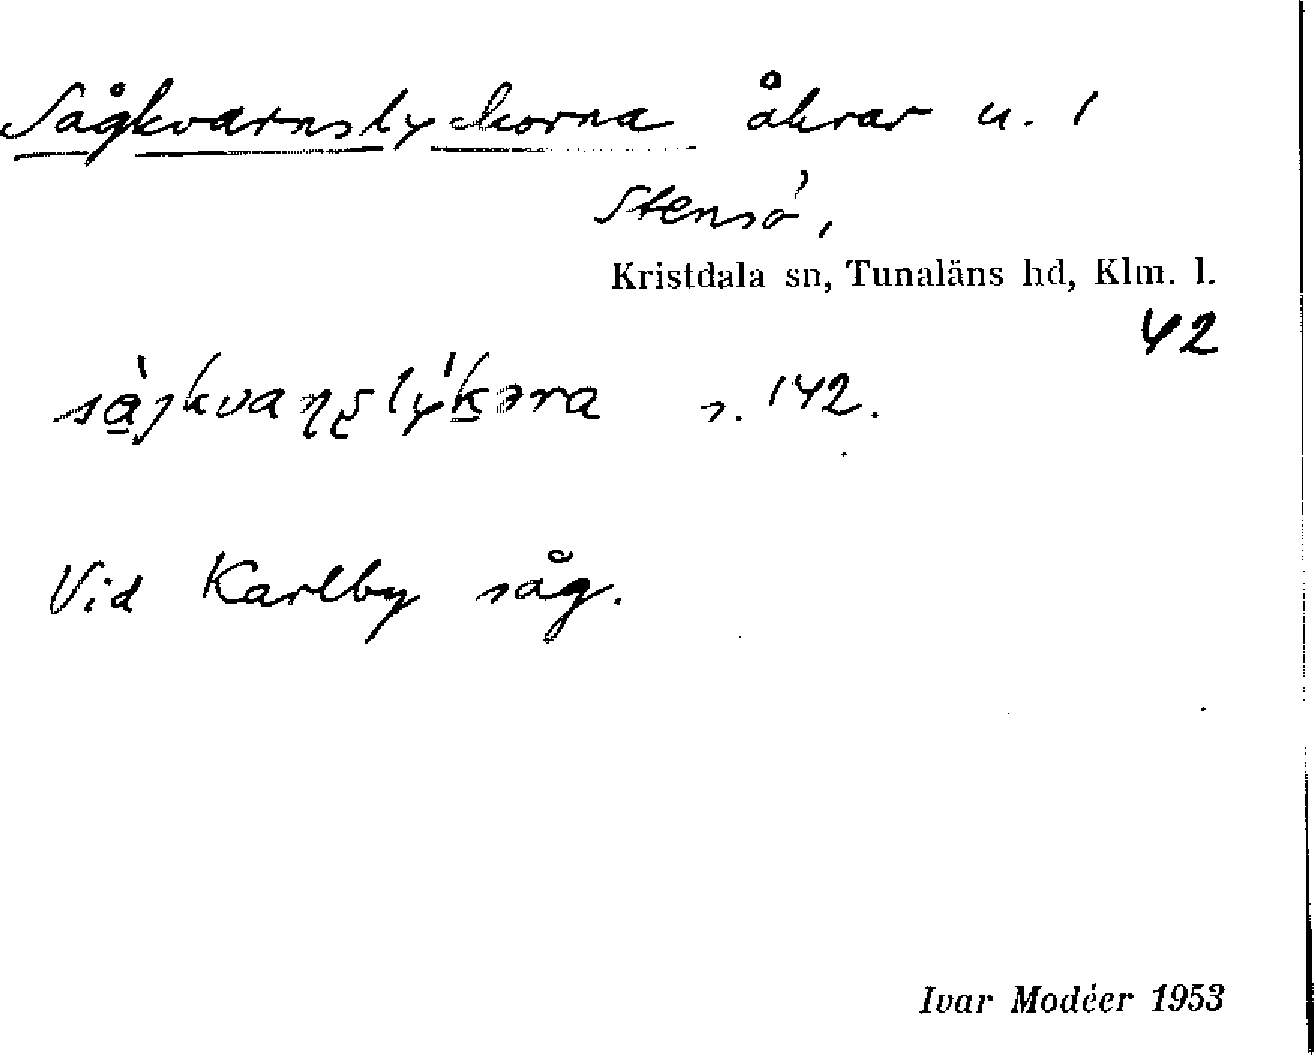 Sågkvarnslyckorna åkrar u. 1
Stensö,
Kristdala sn, Tunaläns hd, Klm. l.
42
s. 142.
Vid Karlby såg.
Ivar Modéer 1953